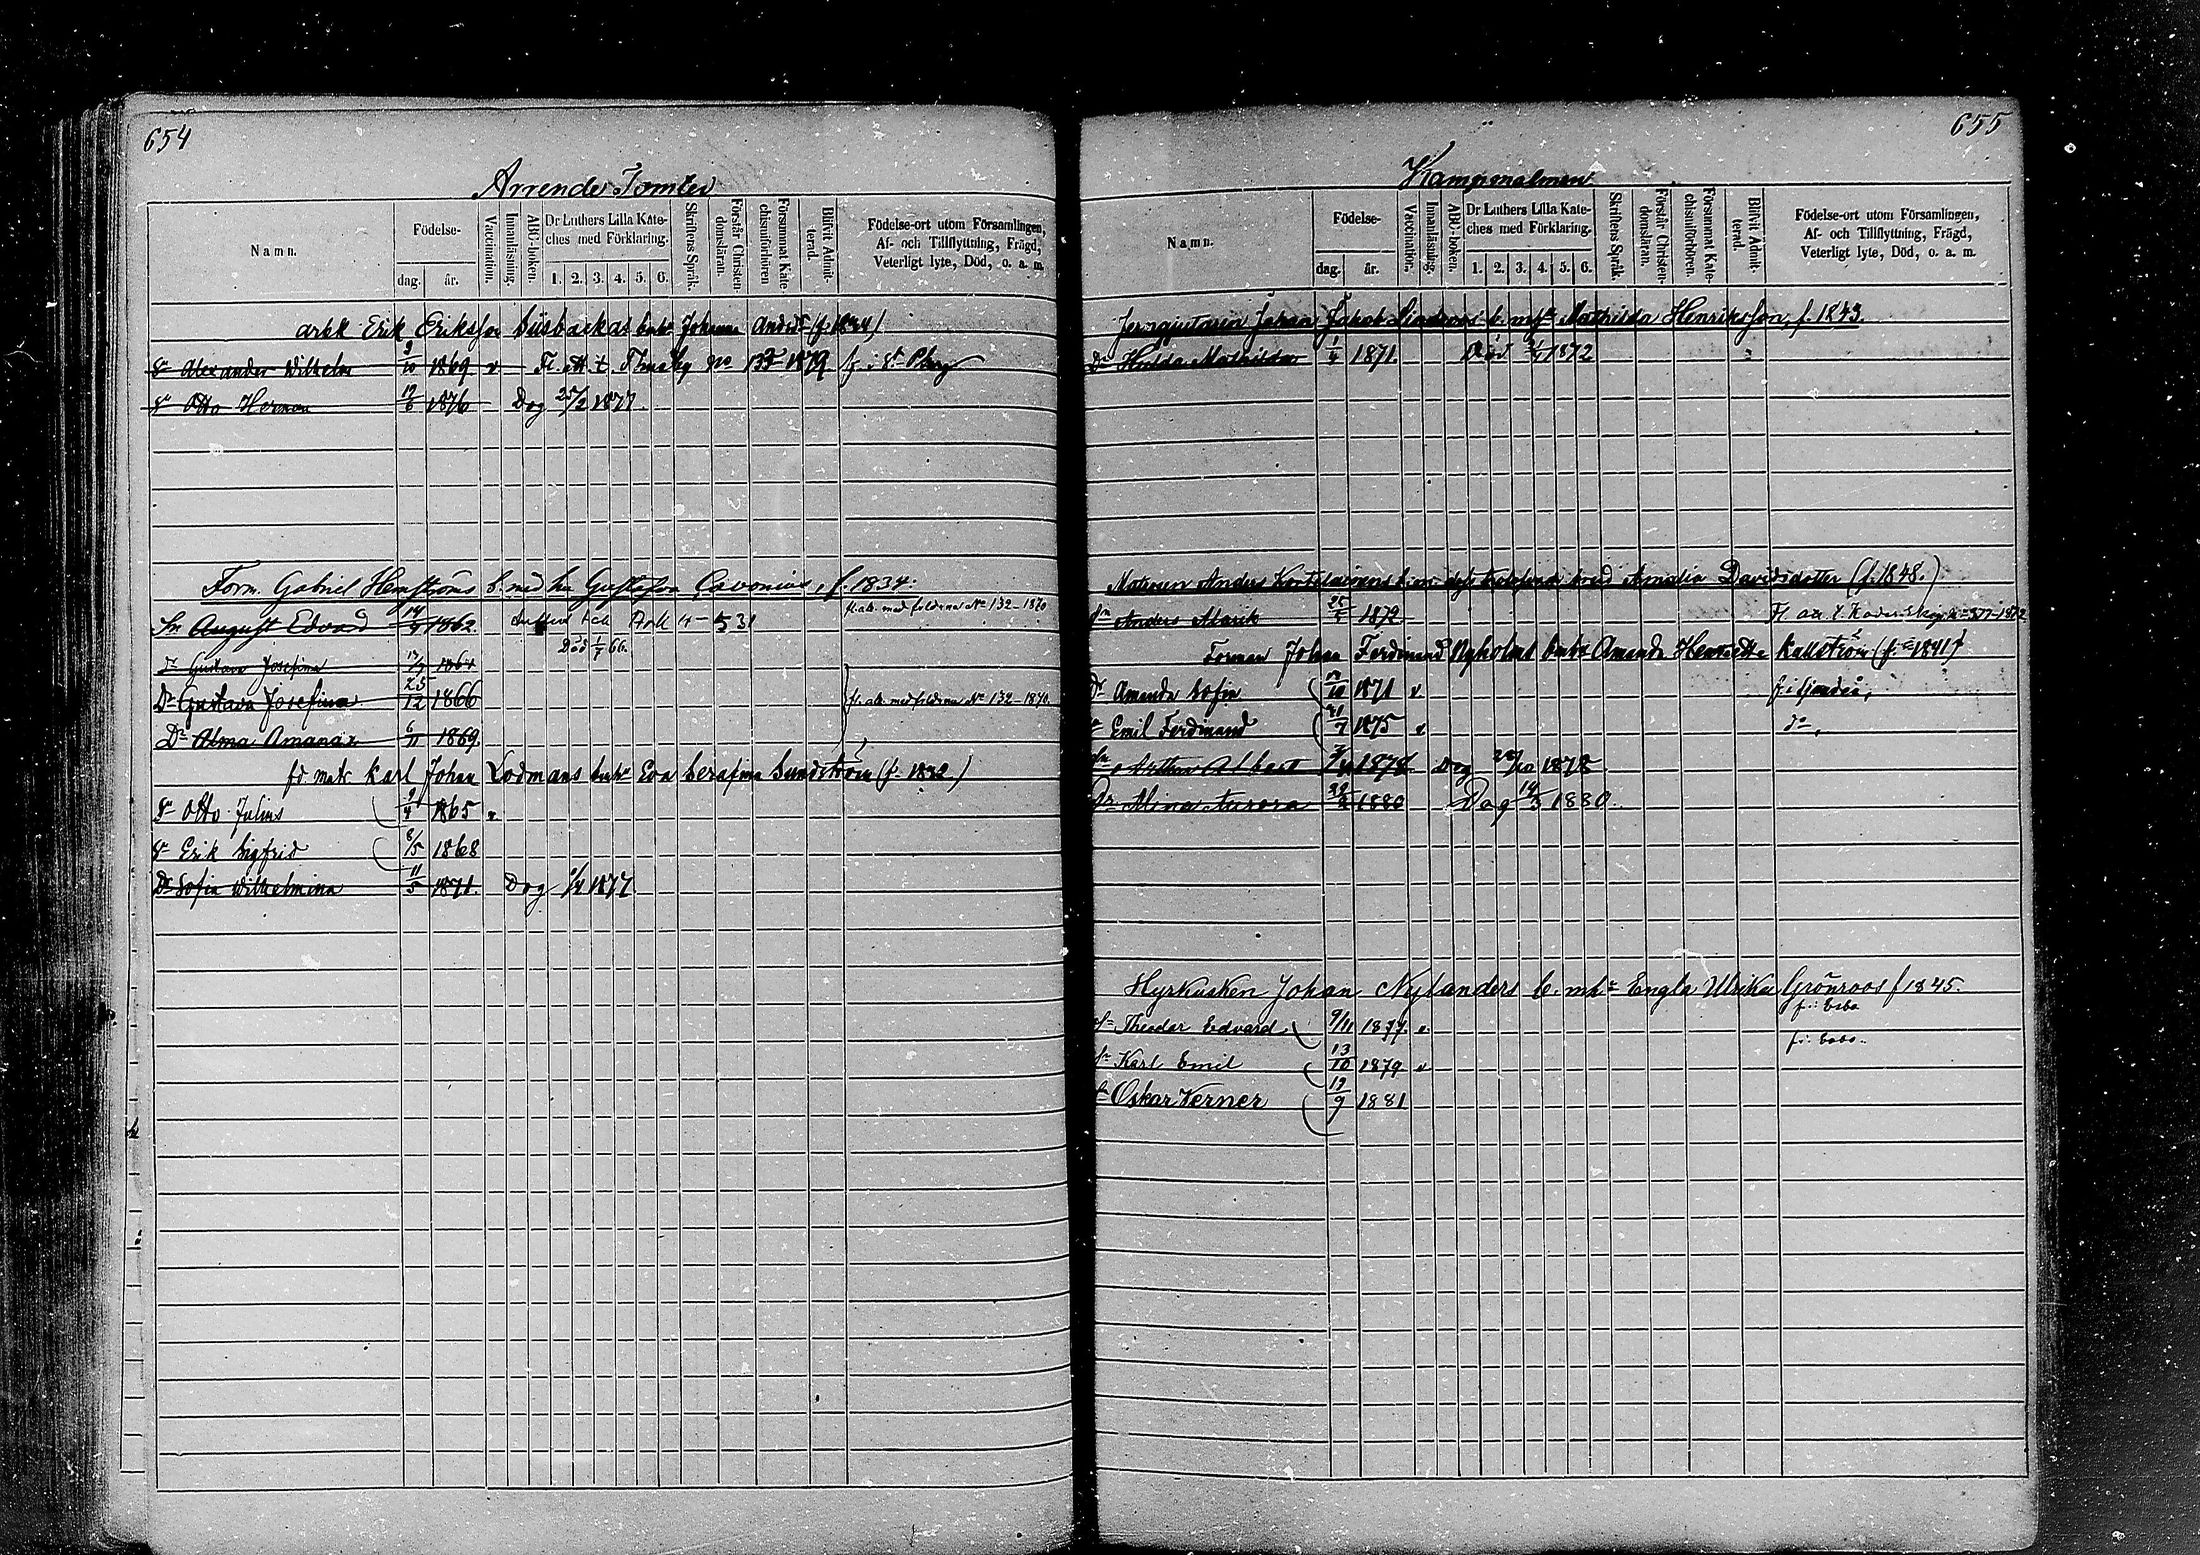 654
Arrende Tomter
Namn.
Födelse-
dag.
år.
Vaccination.
Innanläsning.
ABC-boken.
Dr Luthers Lilla Kate-
ches med Förklaring.
1. 2. 3. 4. 5. 6.
Skriftens Språk.
Förstår Christen-
domsläran.
Försummat Kate-
chismiförhören
Blifvit Admit-
terad.
Födelse-ort utom Församlingen,
Af- och Tillflyttning, Frägd,
Veterligt lyte, Död, o. a. m.
arbk Erik Eriksson Susbackas Johanna (f. 1834)
Sn Alexander Wilhelm 2/10 1869 v Fl. att. t. No 132 1879 f. i St. Pbrg
Sn Otto Herman 12/6 1876 Dog 25/2 1877.
Form. Gabriel Hemströms b. med hu Gustafva Cavonius, f. 1834.
Sn August Edvard 14/9 1862. 531 fl. att. med föräldrarna No 132-1870
Död 1/7 66.
Dr Gustava Josefina 13/3 1864
Dr Gustava Josefina 25/12 1866 fl. att. med föräldrarna No 132-1870.
Dr Alma Amanda 6/11 1869.
fd matr Karl Johan Lodmans Eva Serafina Sundström (f. 1832)
Sn Otto Julius 9/4 1865 v
Sn Erik Sigfrid 8/5 1868
Dr Sofia Wilhelmina 11/5 1871. Dog 1/4 1877.
655
Kampmalmen
Namn.
Födelse-
dag.
år.
Vaccination.
Innanläsning.
ABC-boken.
Dr Luthers Lilla Kate-
ches med Förklaring.
1. 2. 3. 4. 5. 6.
Skriftens Språk.
Förstår Christen-
domsläran.
Försummat Kate-
chismiförhören.
Blifvit Admit-
terad.
Födelse-ort utom Församlingen,
Af- och Tillflyttning, Frägd,
Veterligt lyte, Död, o. a. m.
Jerngjutaren Johan Jakob Lindroos b. m. Mathilda Henriksson, f. 1843.
Dr Hulda Mathilda 1/4 1871. Död 1872
Matrosen Anders b. m. Amalia Davidsdotter (f. 1848.)
Sn Anders 25/5 1872. Fl. att. t. 1872
Forman Johan Ferdinand Nyholms Amanda Henrietta Källström (f. 1841)
Dr Amanda Sofia 12/10 1871 v f. i Sjundeå,
Sn Emil Ferdinand 21/7 1875 v do,
Sn Arthur Albert 1878 Dog 28/10 1878
Dr Mina Aurora 1880 Dog 14/3 1880.
Hyrkusken Johan Nylanders b. mh Engla Ulrika Grönroos f 1845.
f. i Esbo
Sn Theodor Edvard 9/11 1877. v.
f. i Esbo.
Sn Karl Emil 13/10 1879 v
Sn Oskar Verner 12/9 1881